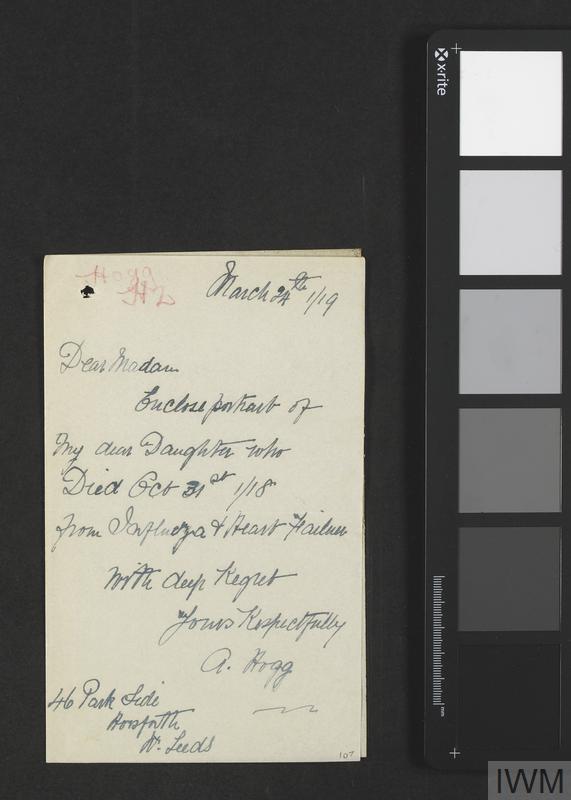 Hogg
H2
March 24th 1/19
Dear Madam
Enclose portrait of
My dear Daughter who
Died Oct 31st 1/18
from Influeza & Heart Failure
With deep Regret
Yours Respectfully
A. Hogg
46 Park Side
Horsforth
Nr. Leeds
107
x-rite
mm
IWM